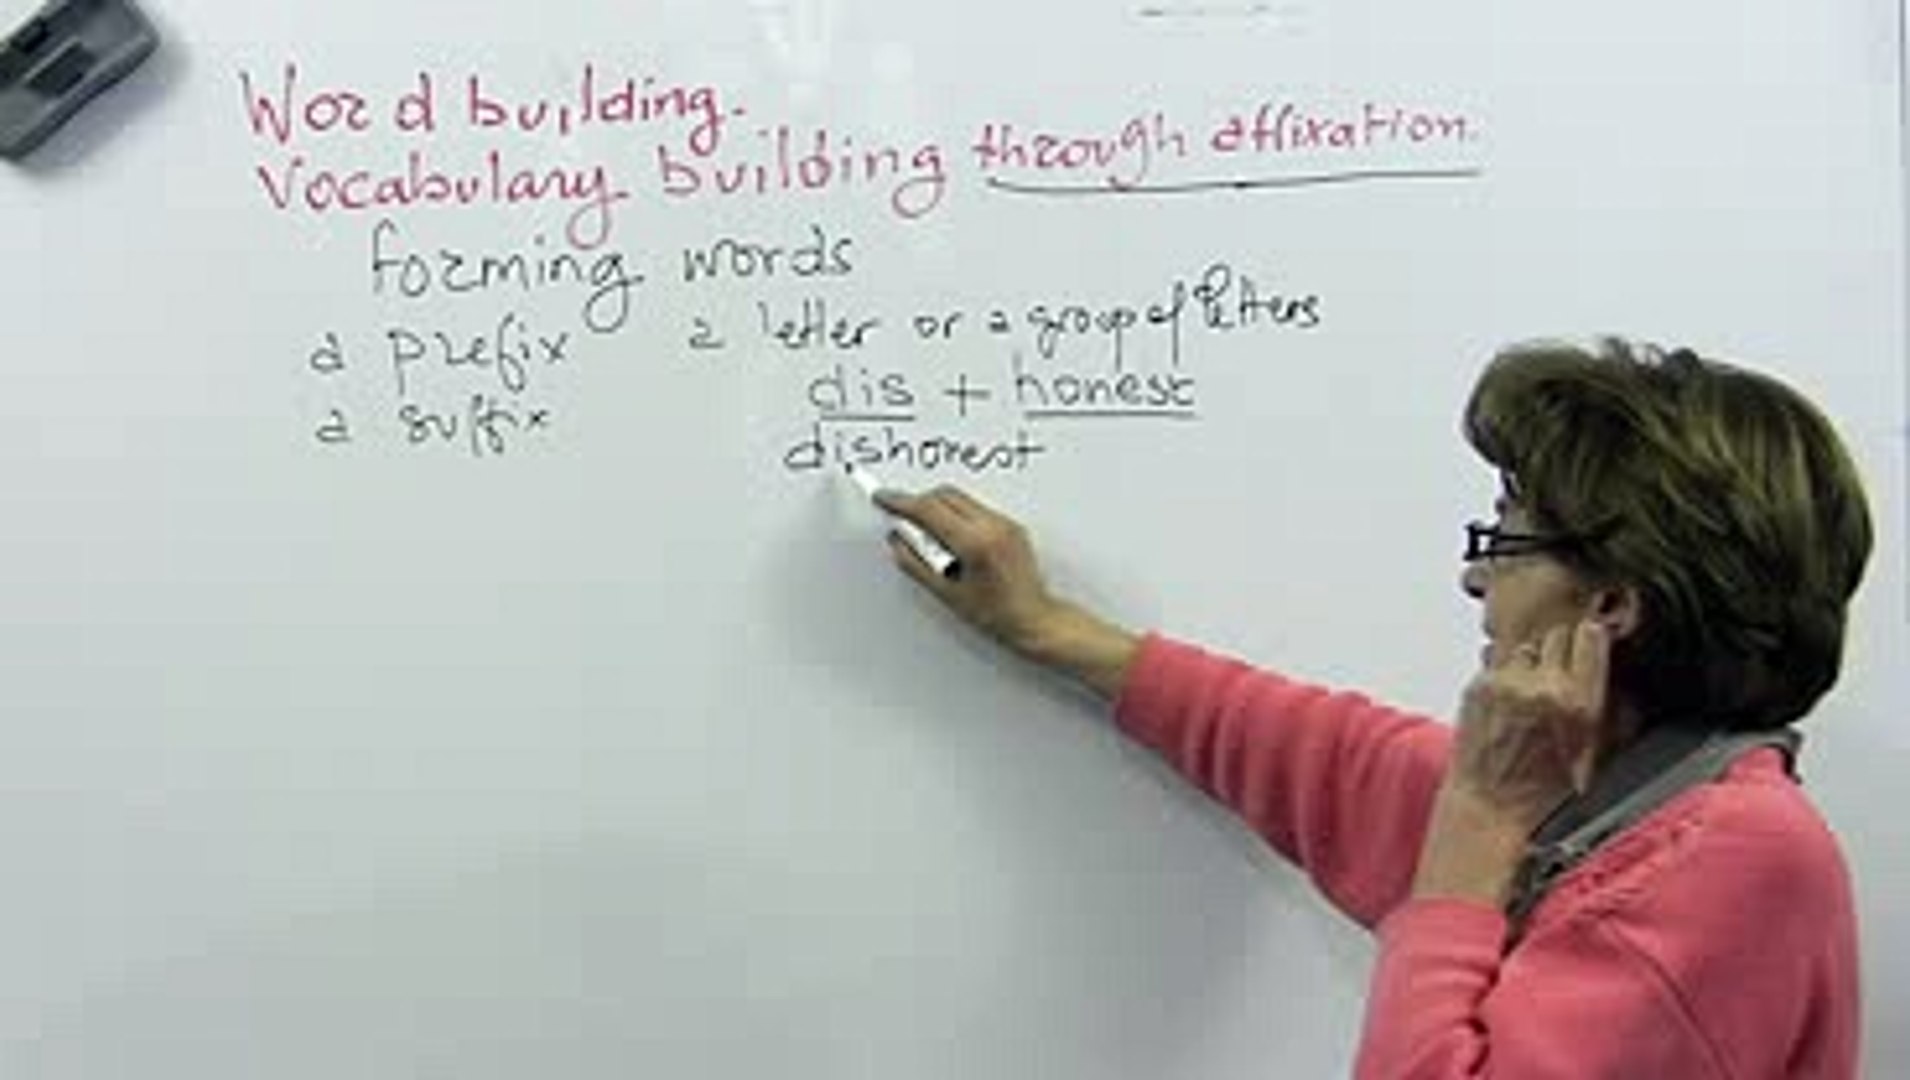 Word building.
Vocabulary building through affixation.
forming words
a prefix a letter or a group of letters
a suffix dis + honest
dishonest